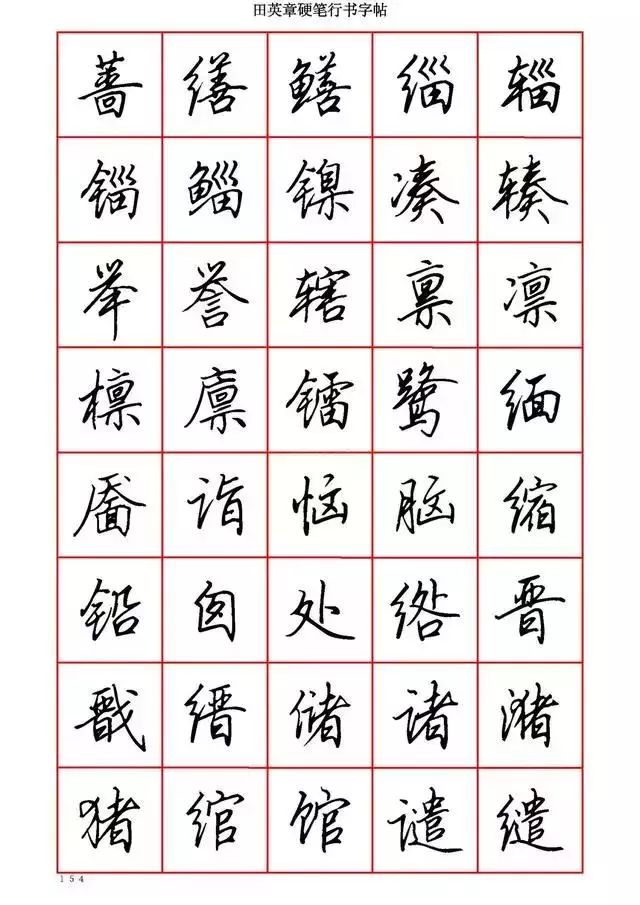 田英章硬笔行书字帖
蔷 缮 鳝 缁 辎
锱 鲻 镍 凑 辏
举 誉 辖 禀 凛
檩 廪 镭 鹭 缅
靥 诣 恼 脑 缩
铅 囱 处 绺 晋
戬 缙 储 诸 潴
猪 绾 馆 谴 缱
154